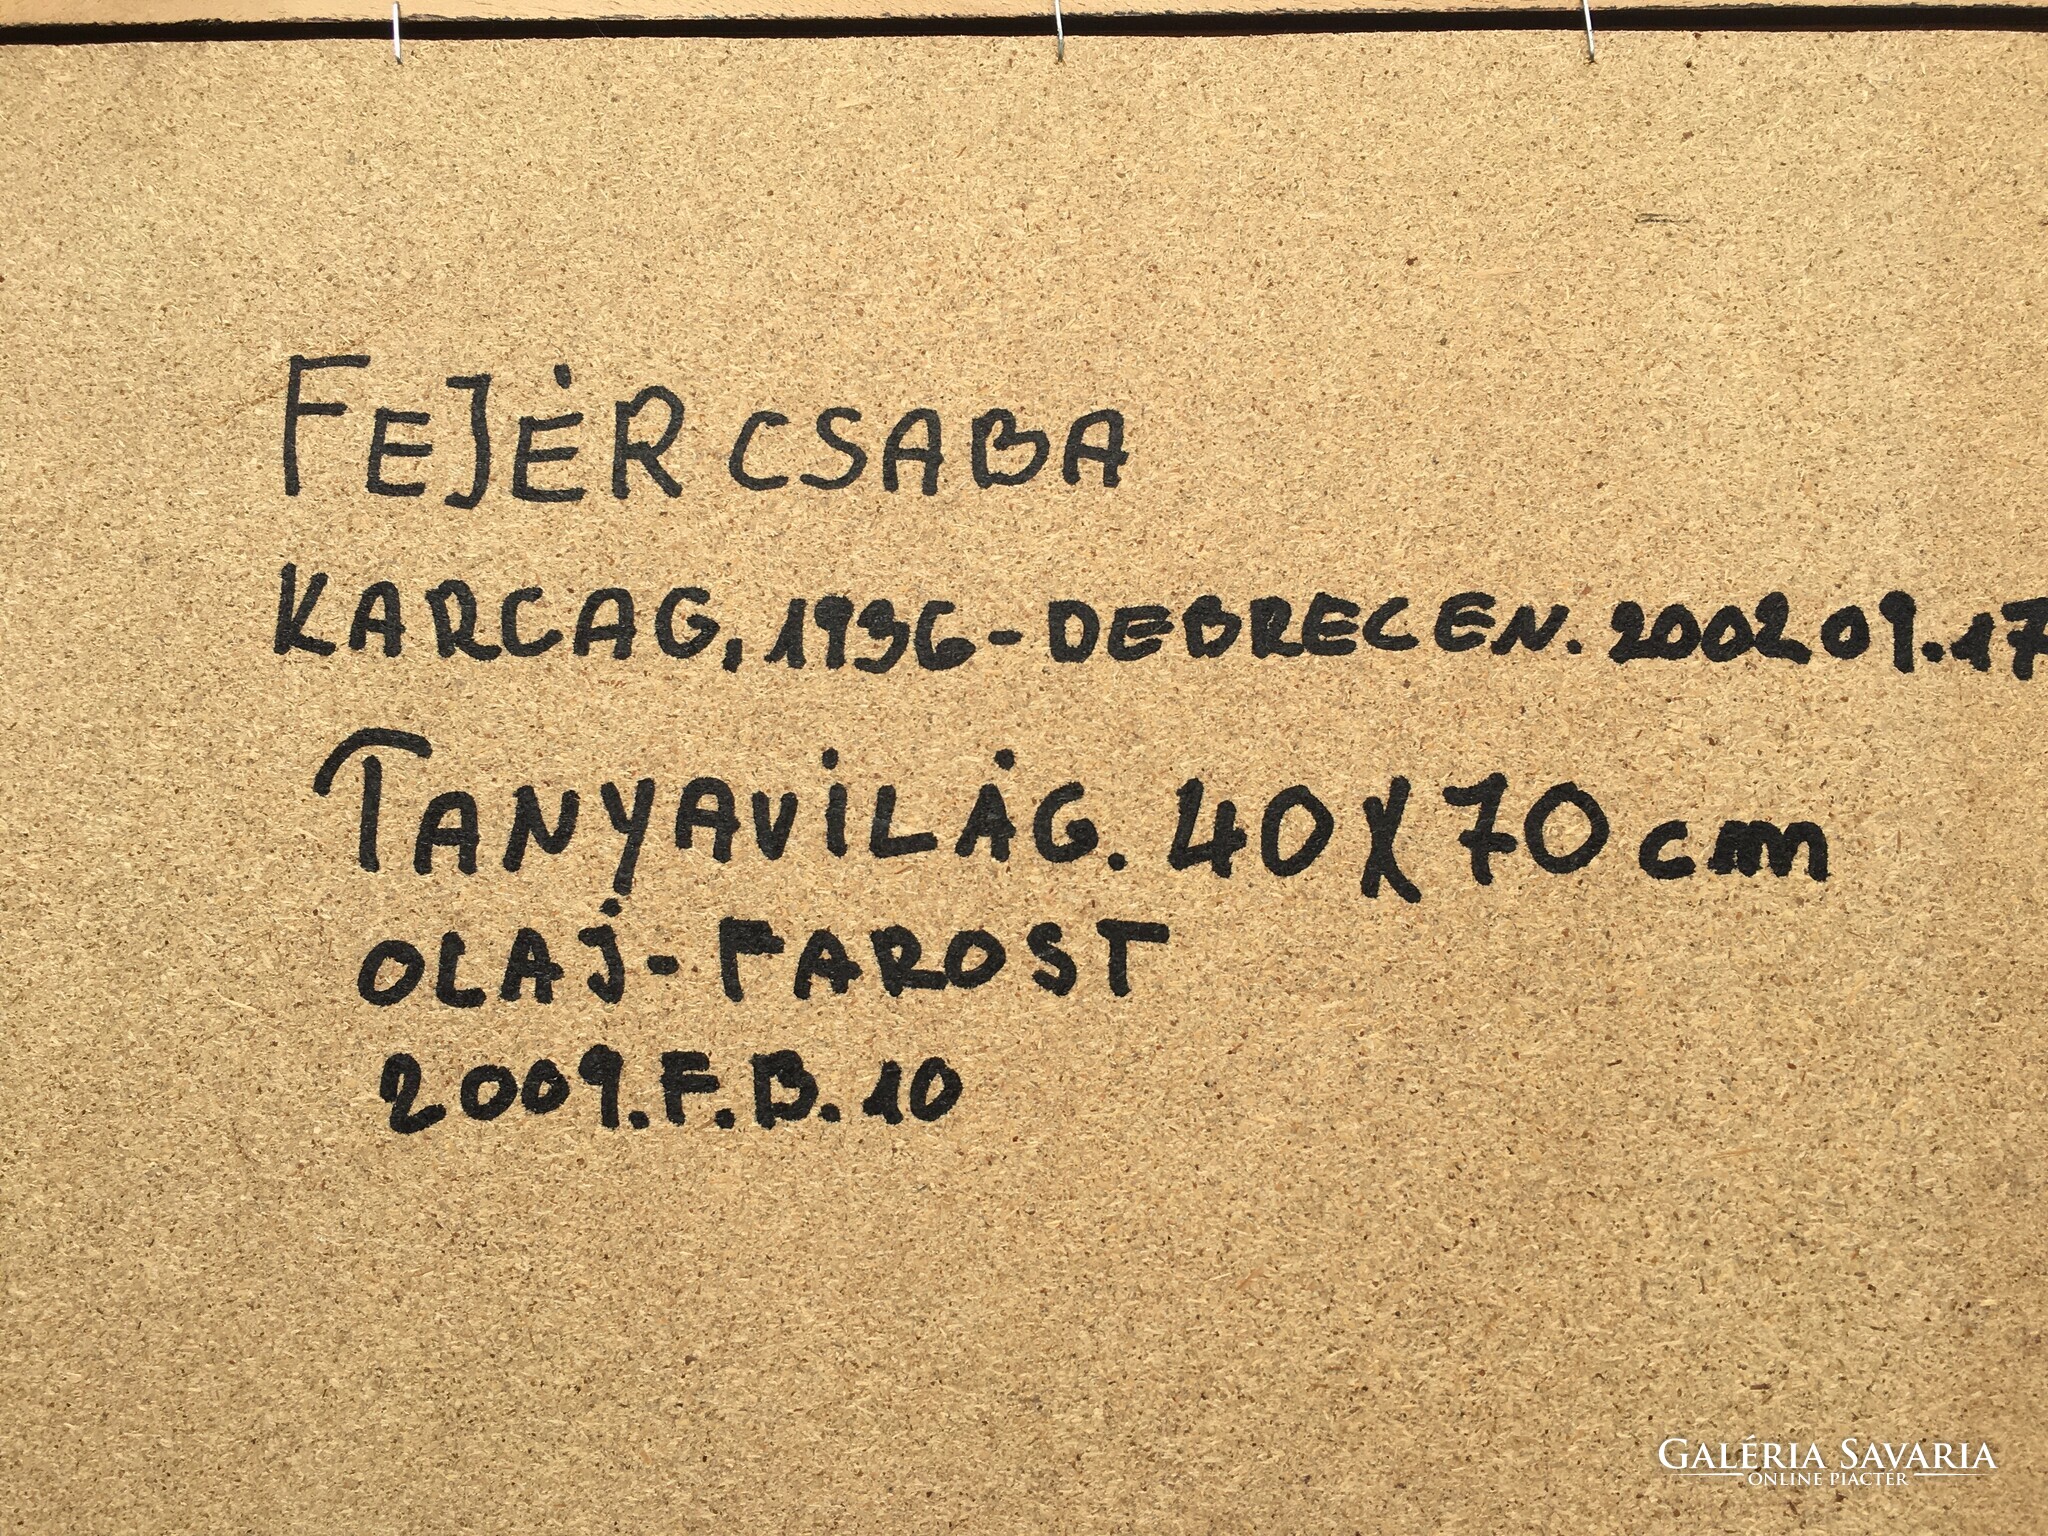 FEJÉR CSABA
KARCAG, 1936-DEBRECEN. 2002 09.17
TANYAVILÁG. 40X70 cm
OLAJ-FAROST
2009.F.B.10
GALÉRIA SAVARIA
ONLINE PIACTÉR